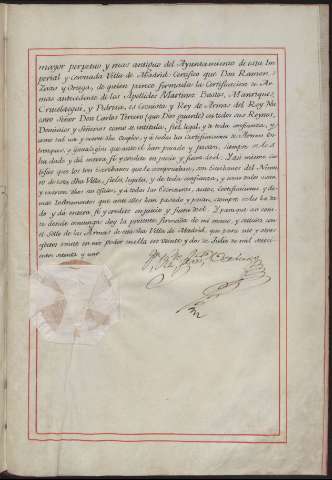 mayor perpetuo y mas antiguo del Ayuntamiento de esta Im
perial y coronada Villa de Madrid: Certifico que Don Ramon
Zazo y Ortega, de quien parece formada la Certificacion de Ar
mas antecedente de los Apellidos Martinez, Bustos, Manrique,
y Pedrua, es Cronista y Rey de Armas del Rey Nu
estro Señor Don Carlos Tercero (que Dios guarde) en todos sus Reynos,
Dominios y Señorios como se intitula, fiel, legal, y de toda confianza, y
como tal usa y exerce dho Empleo, y à todas las Certificaciones de Armas
y Genealogias que ante èl han pasado y pasan, siempre se les à
ha dado y dà entera fè y credito en juicio y fuera de èl. Y asi mismo cer
tifico que los tres Escribanos que le comprueban, son Escribanos del Nume
ro de esta dha Villa, fieles, legales, y de toda confianza, y como tales usan
y exercen dhos sus oficios, y à todas las Escrituras, autos, certificaciones y de
mas Instrumentos que ante ellos han pasado y pasan, siempre se les ha da
do y dà entera fè y credito en juicio y fuera de èl. Y para que asi cons
te donde convenga doy la presente firmada de mi mano, y sellada con
el Sello de las Armas de esta dha Villa de Madrid, que para este y otros
efectos existe en mi poder en ella en veinte y dos de Julio de mil setecí
entos setenta y uno